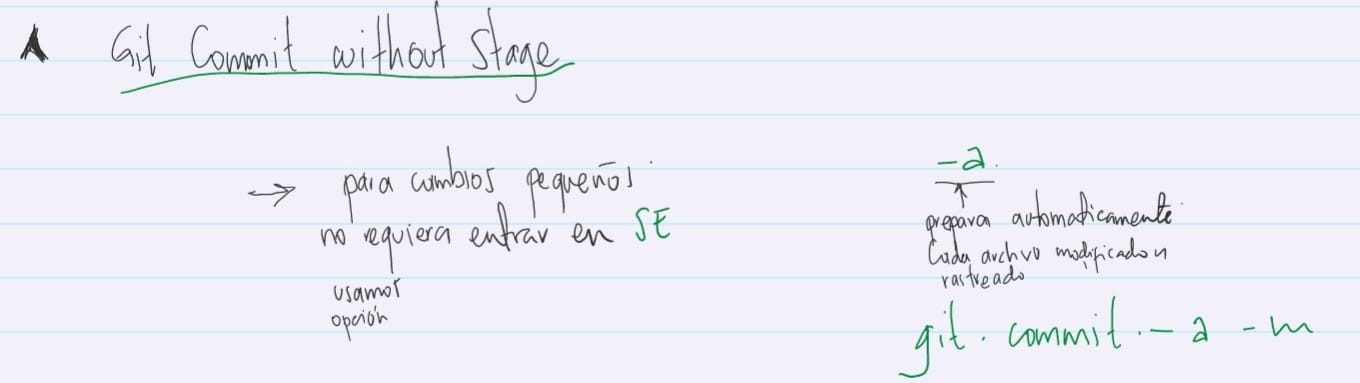 Git Commit without Stage
→ para cambios pequeños
no requiera entrar en SE
usamos
opción
-a.
prepara automaticamente
Cada archvo modificado y
rastreado
git. commit. - a - m